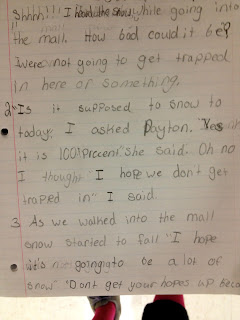 Shhhh!!! I heard the snow while going into
the mall. How bad could it be?
were not going to get trapped
in here or something.
2 "Is it supposed to snow to
today, I asked Payton. Yes
it is 100% Precent." She said. Oh no
I thought "I hope we don't get
traped in" I said.
3. As we walked into the mall
snow started to fall "I hope
it's going to be a lot of
snow" "Dont get your hopes up beca